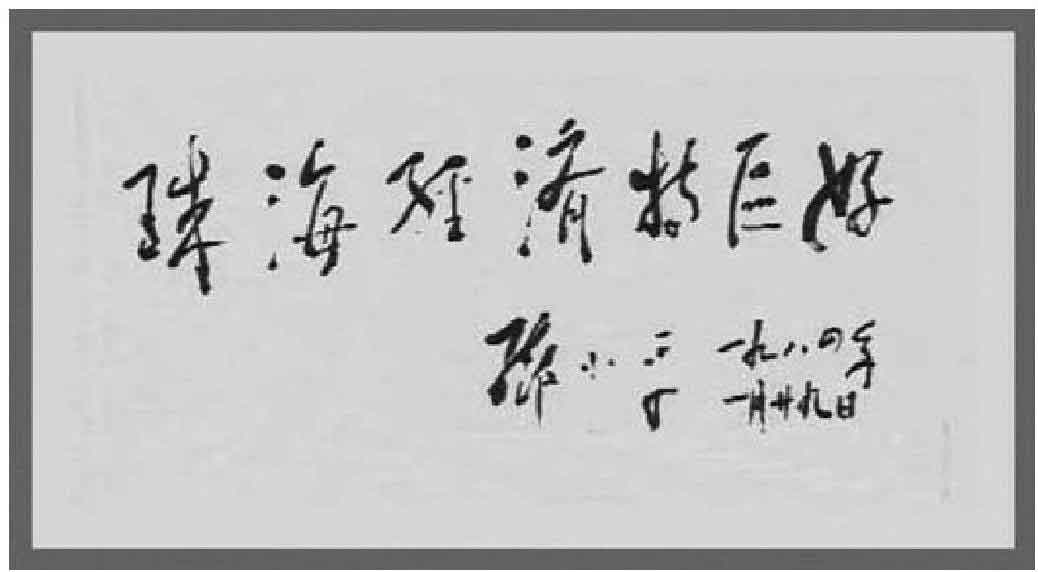 珠海经济特区好
邓小平 一九八四年
一月廿九日